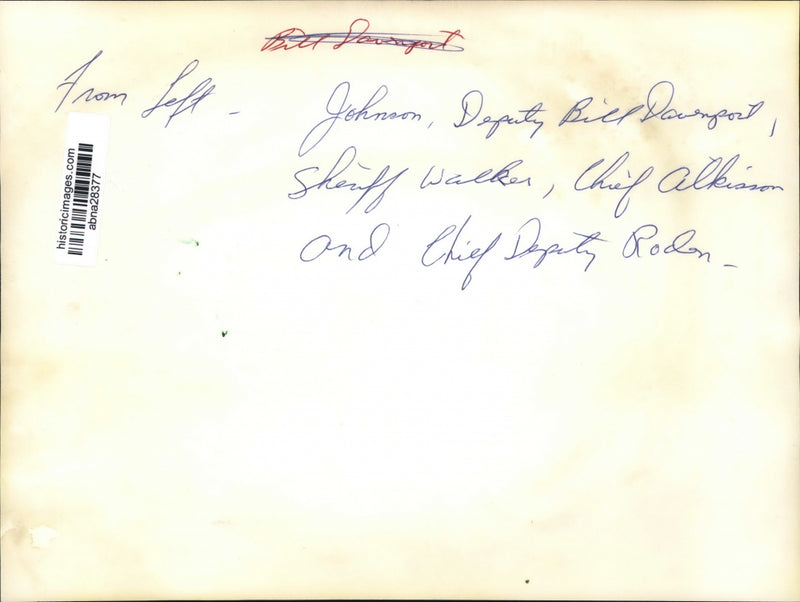 Bill Davenport
From Left - Johnson, Deputy Bill Davenport,
Sheriff Walker, Chief Alkisson
and Chief Deputy Roden -
historicimages.com
abna28377